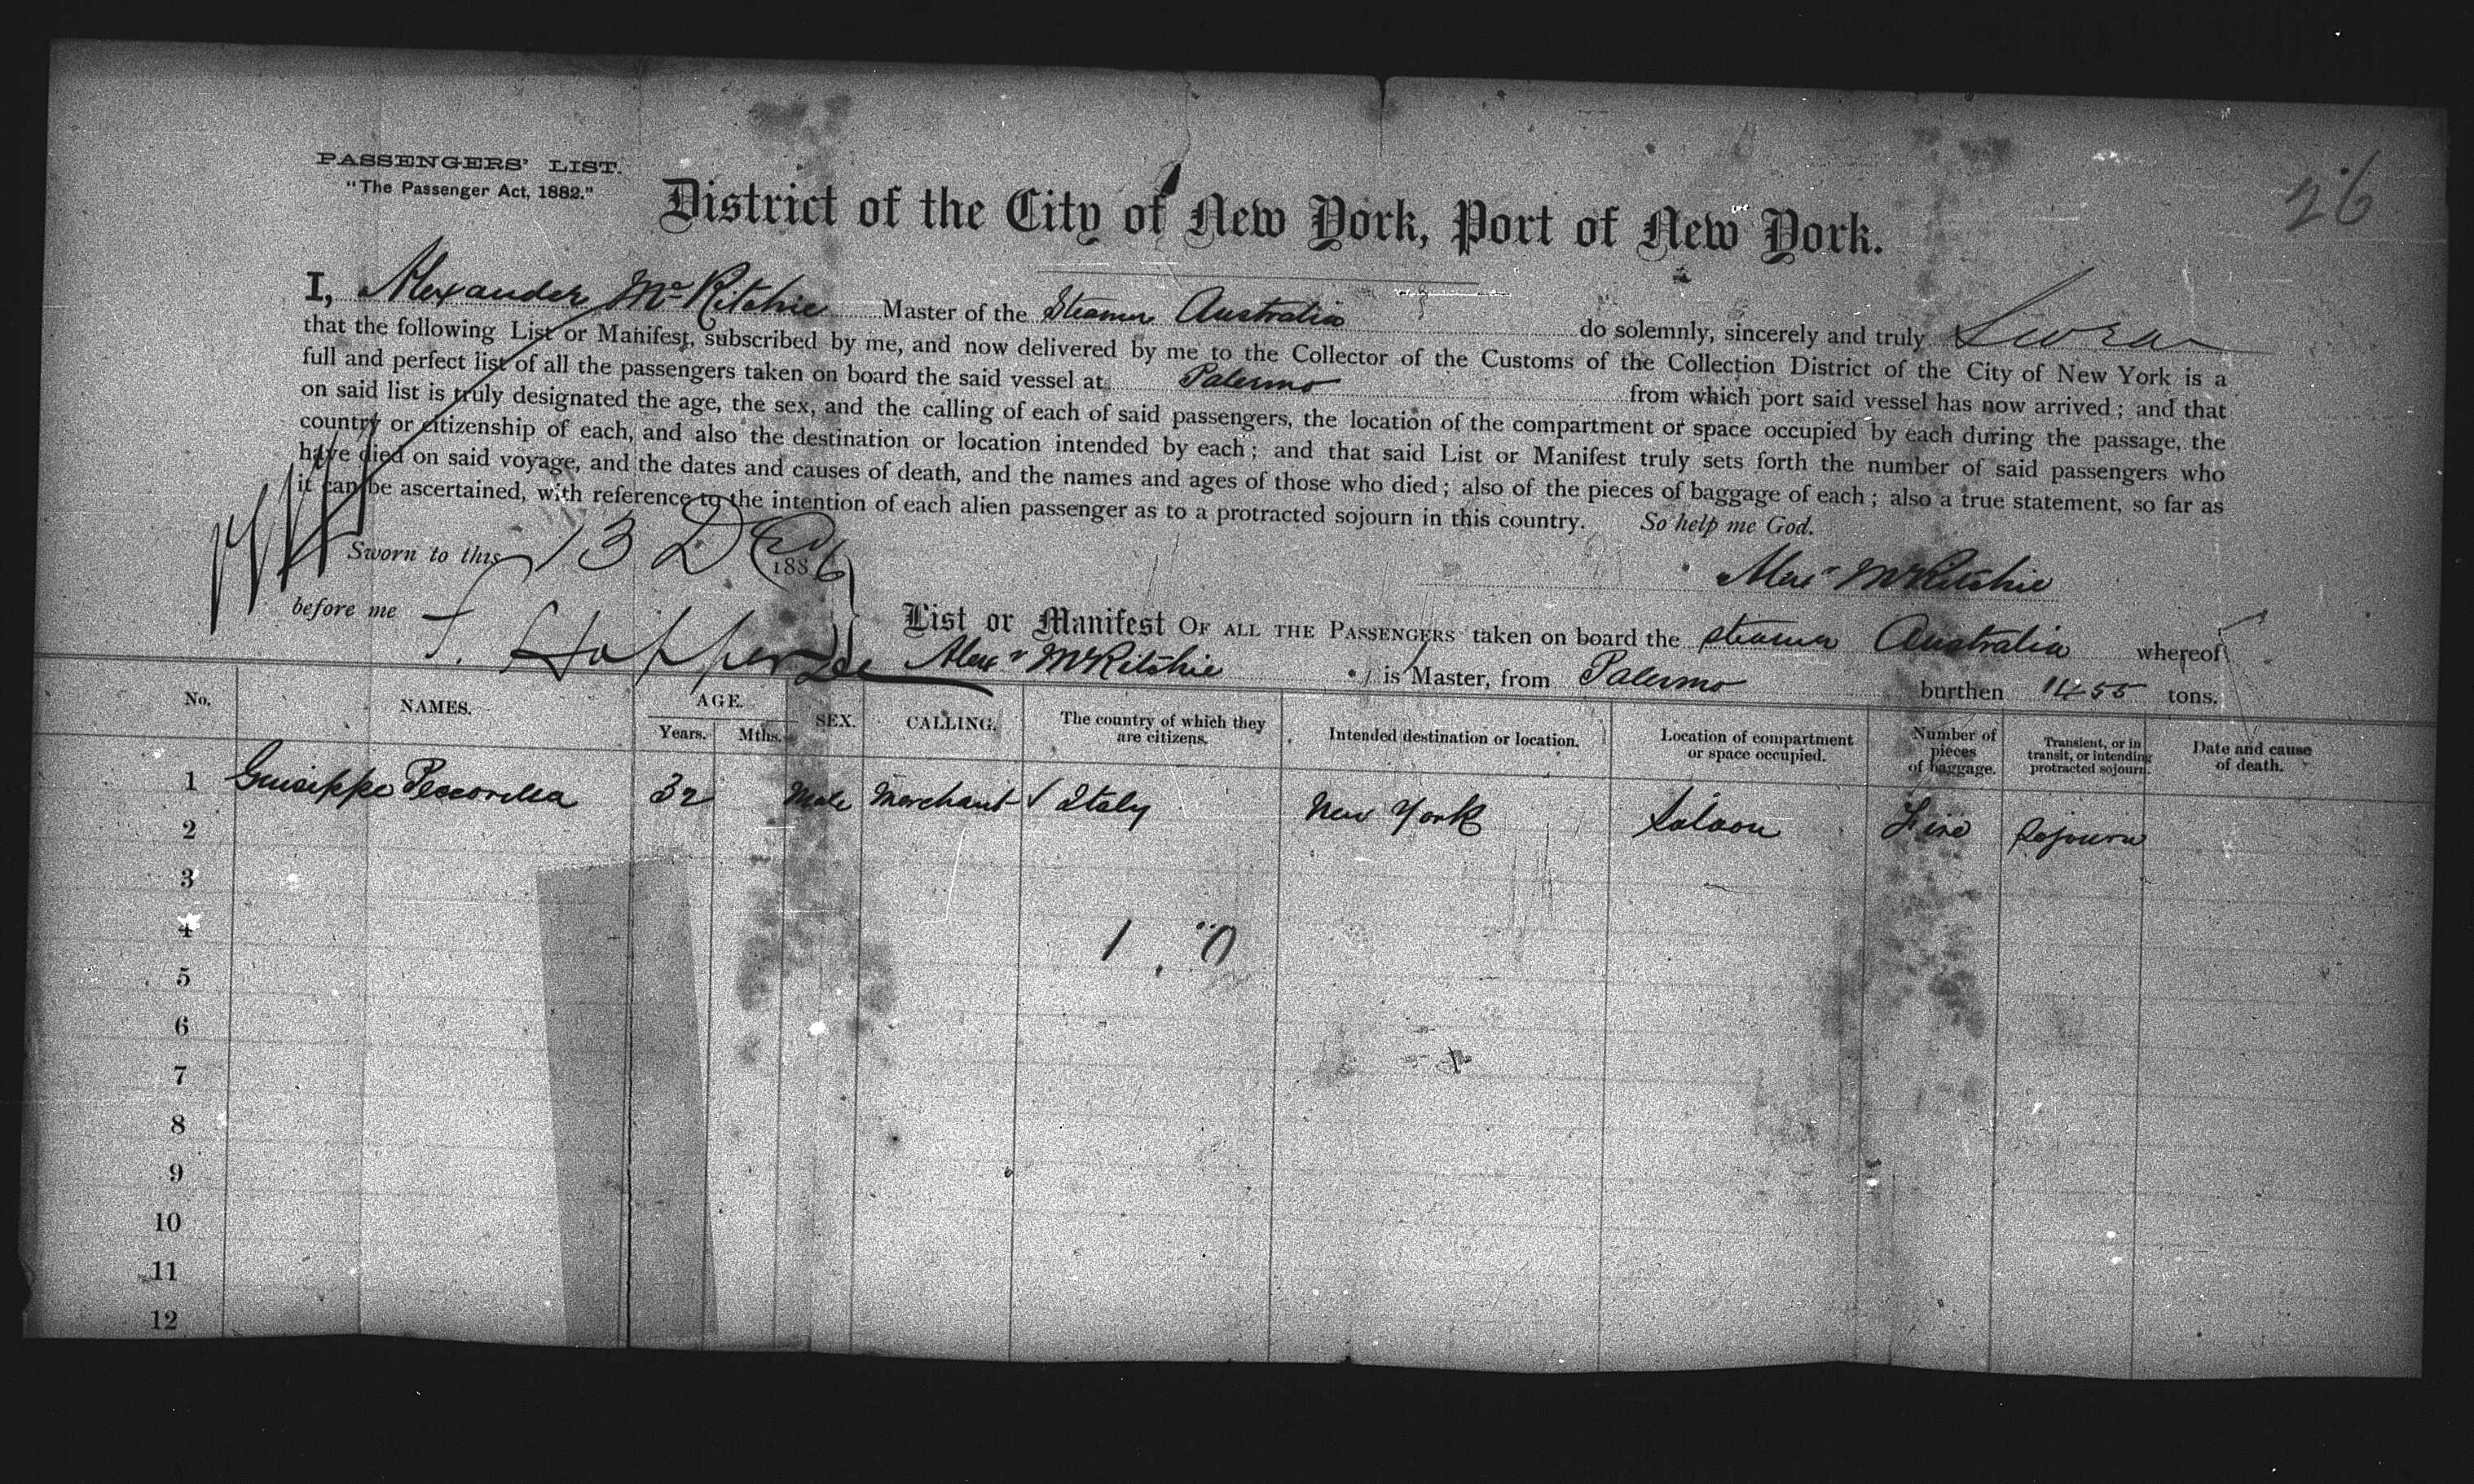 PASSENGERS' LIST.
"The Passenger Act, 1882."
26
District of the City of New York, Port of New York.
I, Alexander McRitchie Master of the Steamer Australia do solemnly, sincerely and truly Swear
that the following List or Manifest, subscribed by me, and now delivered by me to the Collector of the Customs of the Collection District of the City of New York is a
full and perfect list of all the passengers taken on board the said vessel at Palermo from which port said vessel has now arrived; and that
on said list is truly designated the age, the sex, and the calling of each of said passengers, the location of the compartment or space occupied by each during the passage, the
country or citizenship of each, and also the destination or location intended by each; and that said List or Manifest truly sets forth the number of said passengers who
have died on said voyage, and the dates and causes of death, and the names and ages of those who died; also of the pieces of baggage of each; also a true statement, so far as
it can be ascertained, with reference to the intention of each alien passenger as to a protracted sojourn in this country. So help me God.
Sworn to this 13 Dec 1886
Alexr McRitchie
before me
List or Manifest OF ALL THE PASSENGERS taken on board the steamer Australia whereof
Alexr McRitchie is Master, from Palermo burthen 1455 tons.
No. NAMES. AGE. Years. Mths. SEX. CALLING. The country of which they are citizens. Intended destination or location. Location of compartment or space occupied. Number of pieces of baggage. Transient, or in transit, or intending protracted sojourn. Date and cause of death.
1 Guiseppe 32 Male Merchant Italy New York Saloon Sojourn
2
3
4
1 0
5
6
7
8
9
10
11
12